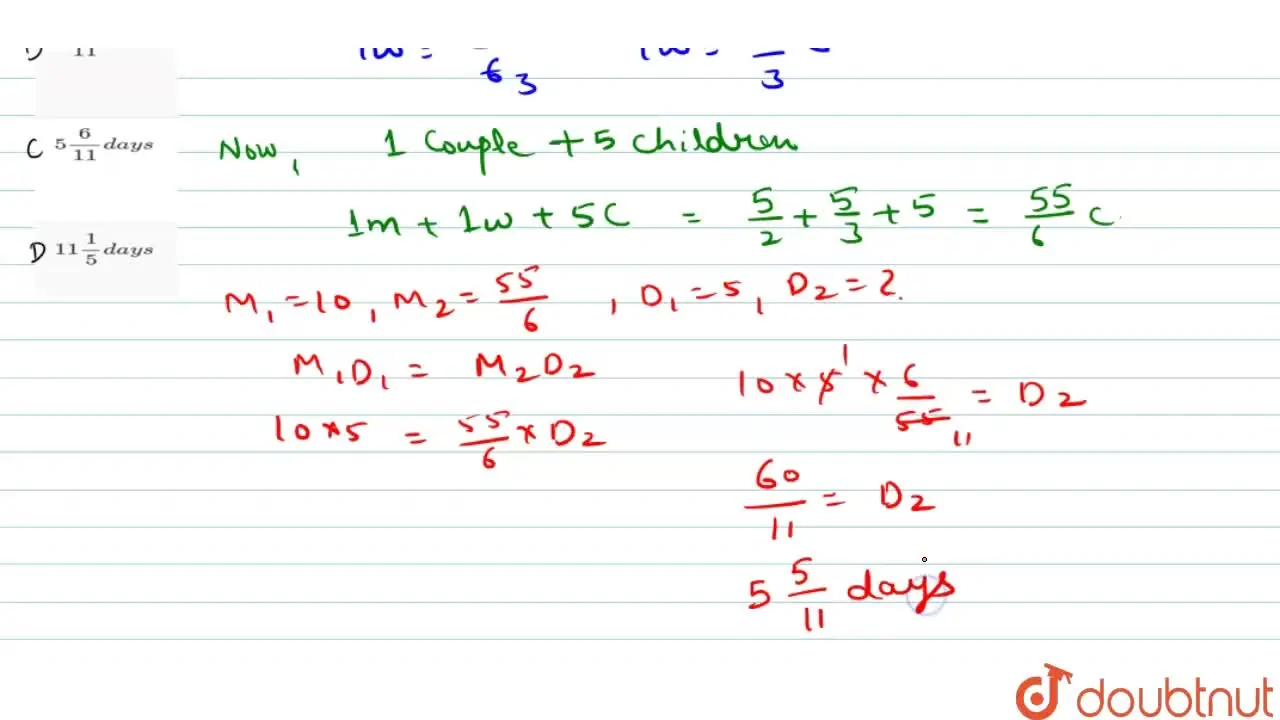 11
1w = 6 3 1w = 3
C 5 6/11 days Now, 1 Couple + 5 Children
1m + 1w + 5C = 5/2 + 5/3 + 5 = 55/6 C
D 11 1/5 days
M₁ = 10, M₂ = 55/6, D₁ = 5, D₂ = ?
M₁D₁ = M₂D₂
10 × 5 = 55/6 × D₂
10 × 5 1 × 6/55 11 = D₂
60/11 = D₂
5 5/11 days
doubtnut